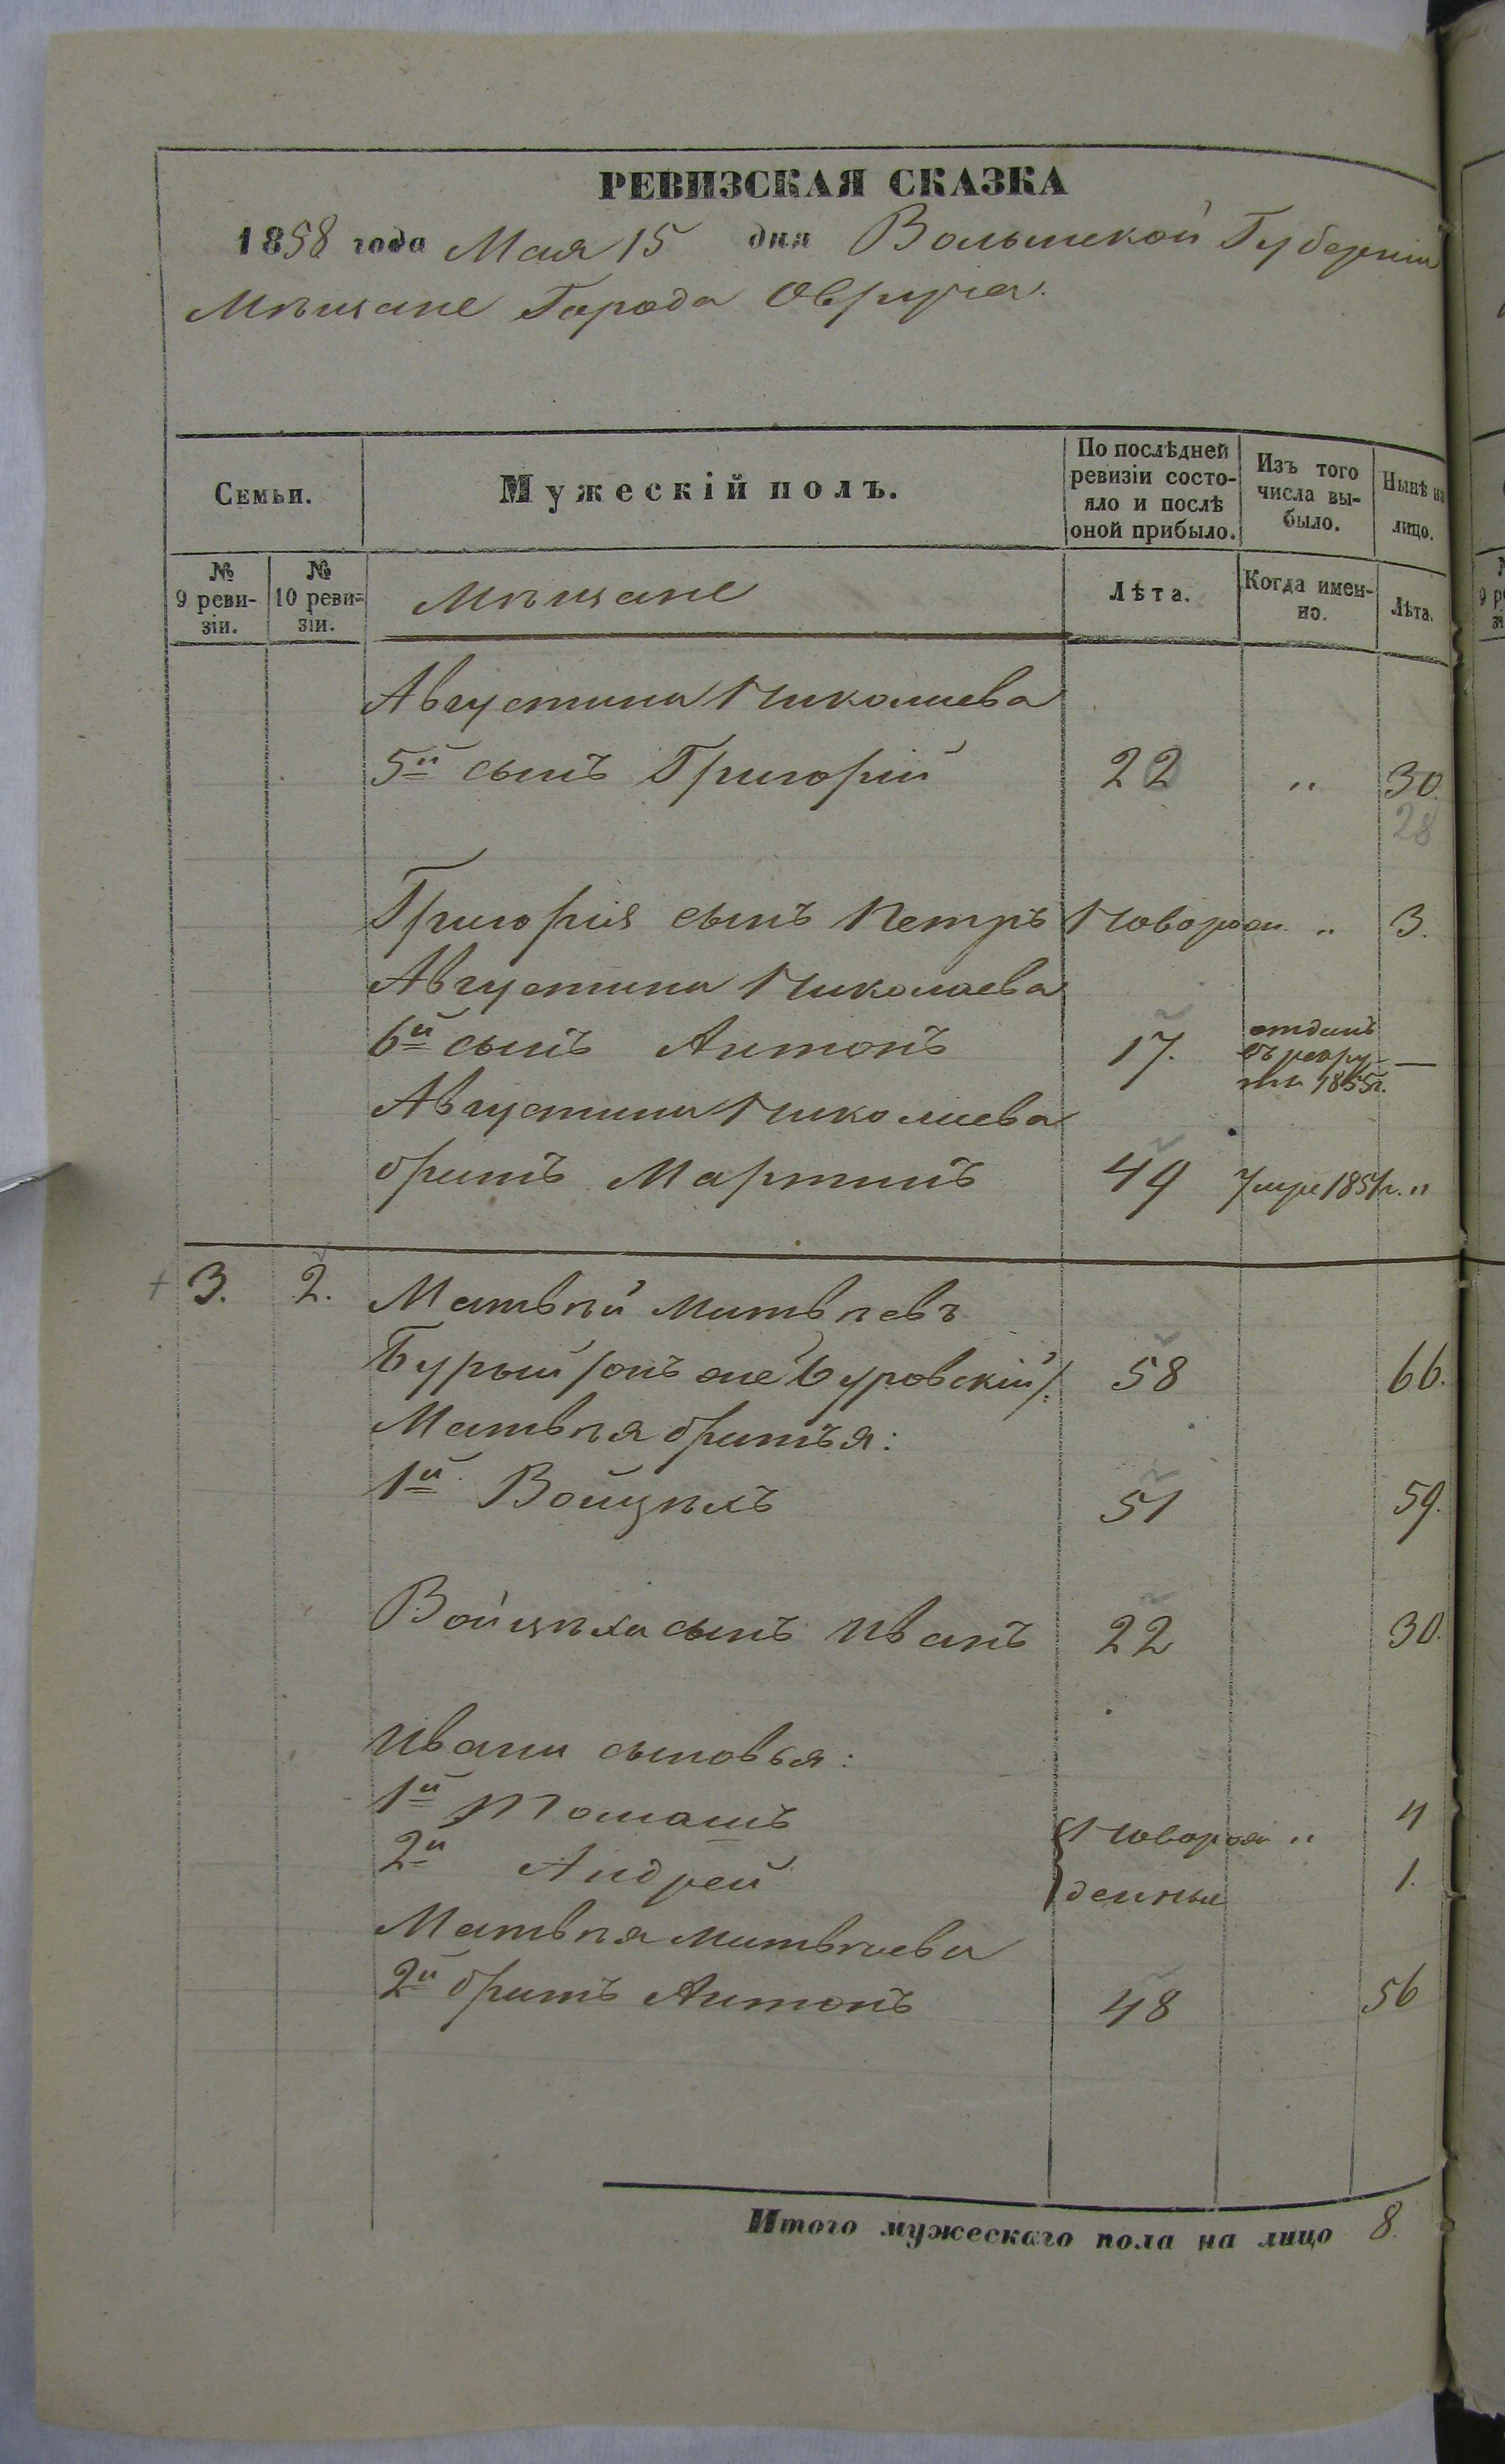 РЕВИЗСКАЯ СКАЗКА
1858 года Мая 15 дня Волынской Губерніи
Мѣщане Города Овруча.
Семьи.
Мужескій полъ.
По послѣдней ревизіи состо-
яло и послѣ
оной прибыло.
Изъ того
числа вы-
было.
Нынѣ на
лицо.
№
9 реви-
зіи.
№
10 реви-
зіи.
Мѣщане
Лѣта.
Когда имен-
но.
Лѣта.
Августина Николаева
5й сынъ Григорій 22 " 30.
28
Григорія сынъ Петръ Новорож. " 3.
Августина Николаева
6й сынъ Антонъ 17. отданъ
въ рекру- —
ты 1855г.
Августина Николаева
братъ Мартинъ 49 Умре 1851г. "
3. 2. Матвѣй Матвѣевъ
Бурый /онъ же Буровскій/: 58 66.
Матвѣя братья:
1й Войцѣхъ 51 59.
Войцѣха сынъ Иванъ 22 30.
Ивана сыновья:
1й Томашъ Новорож " 4
2й Андрей денные 1.
Матвѣя Матвѣева
2й братъ Антонъ 48 56
Итого мужескаго пола на лицо 8.